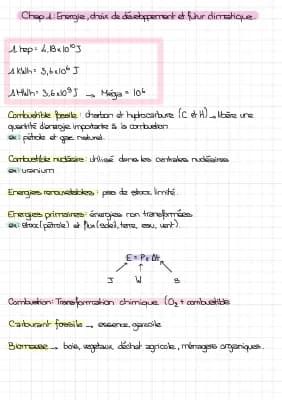 Chap 1: Energie, choix de développement et futur climatique
1 tep = 4,18x10¹⁰J
1 kWh = 3,6x10⁶ J
1 MWh = 3,6x10⁹ J → Méga = 10⁶
Combustible fossile : charbon et hydrocarbure (C et H) → libère une
quantité d'énergie importante à la combustion
ex : pétrole et gaz naturel.
Combustible nucléaire : utilisé dans les centrales nucléaires
ex : uranium
Energies renouvelables : pas de stock limité.
Energies primaires : énergies non transformées
ex : stock (pétrole) et flux (soleil, terre, eau, vent).
E = P x Δt
J W S
Combustion : Transformation chimique (O₂ + combustible
Carburant fossile → essence, gazole
Biomasse → bois, vegetaux, déchet agricole, ménagers organiques.